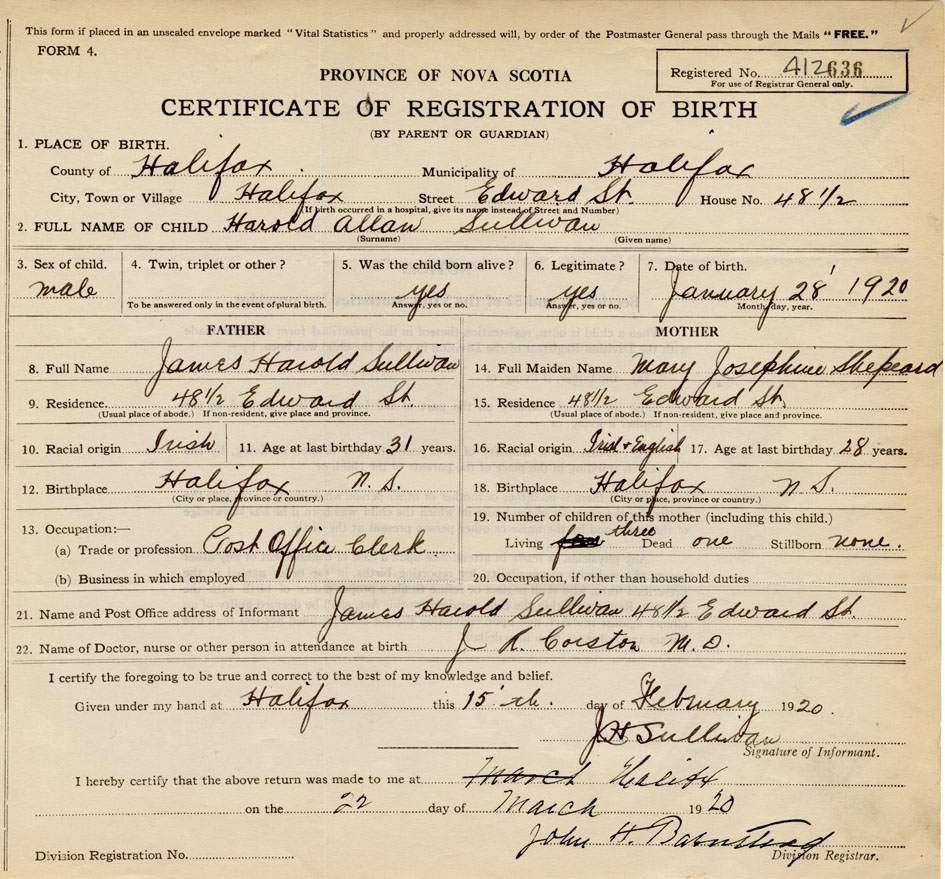 This form if placed in an unsealed envelope marked "Vital Statistics" and properly addressed will, by order of the Postmaster General pass through the Mails "FREE."
FORM 4.
Registered No. 412636
For use of Registrar General only.
PROVINCE OF NOVA SCOTIA
CERTIFICATE OF REGISTRATION OF BIRTH
(BY PARENT OR GUARDIAN)
1. PLACE OF BIRTH.
County of Halifax Municipality of Halifax
City, Town or Village Halifax Street Edward St. House No. 48 1/2
(If birth occurred in a hospital, give its name instead of Street and Number)
2. FULL NAME OF CHILD Harold Allan Sullivan
(Surname) (Given name)
3. Sex of child. 4. Twin, triplet or other? 5. Was the child born alive? 6. Legitimate? 7. Date of birth.
male yes yes January 28 1920
To be answered only in the event of plural birth. Answer, yes or no. Answer, yes or no. Month, day, year.
FATHER MOTHER
8. Full Name James Harold Sullivan 14. Full Maiden Name Mary Josephine Shepeard
9. Residence. 48 1/2 Edward St. 15. Residence 48 1/2 Edward St.
(Usual place of abode.) If non-resident, give place and province. (Usual place of abode.) If non-resident, give place and province.
10. Racial origin Irish 11. Age at last birthday 31 years. 16. Racial origin Irish + English 17. Age at last birthday 28 years.
12. Birthplace Halifax N. S. 18. Birthplace Halifax N S.
(City or place, province or country.) (City or place, province or country.)
13. Occupation:— 19. Number of children of this mother (including this child.)
(a) Trade or profession Post Office Clerk Living three Dead one Stillborn none.
(b) Business in which employed 20. Occupation, if other than household duties
21. Name and Post Office address of Informant James Harold Sullivan 48 1/2 Edward St.
22. Name of Doctor, nurse or other person in attendance at birth J R. Corston M. D.
I certify the foregoing to be true and correct to the best of my knowledge and belief.
Given under my hand at Halifax this 15th. day of February 1920.
J H Sullivan
Signature of Informant.
I hereby certify that the above return was made to me at March Halifx
on the 22 day of March 1920
John H. Barnstead
Division Registration No. Division Registrar.